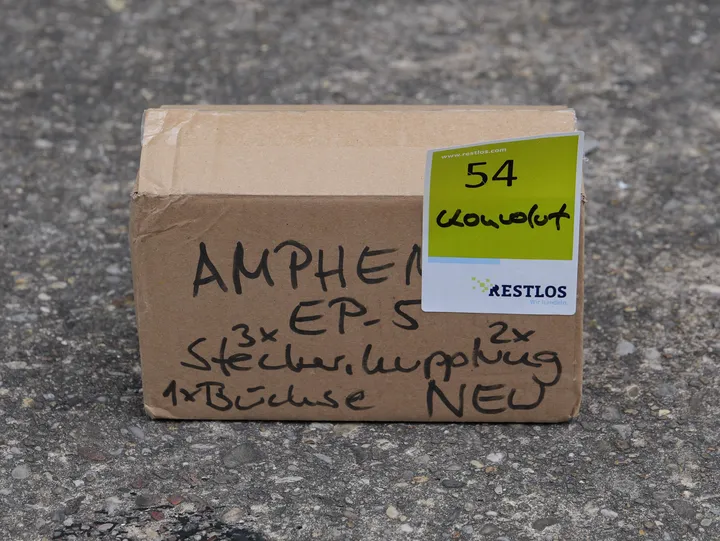 www.restlos.com
54
Konvolut
RESTLOS
AMPHEN
EP-5
3x 2x
Stecker, Kupplung
1x Büchse NEU